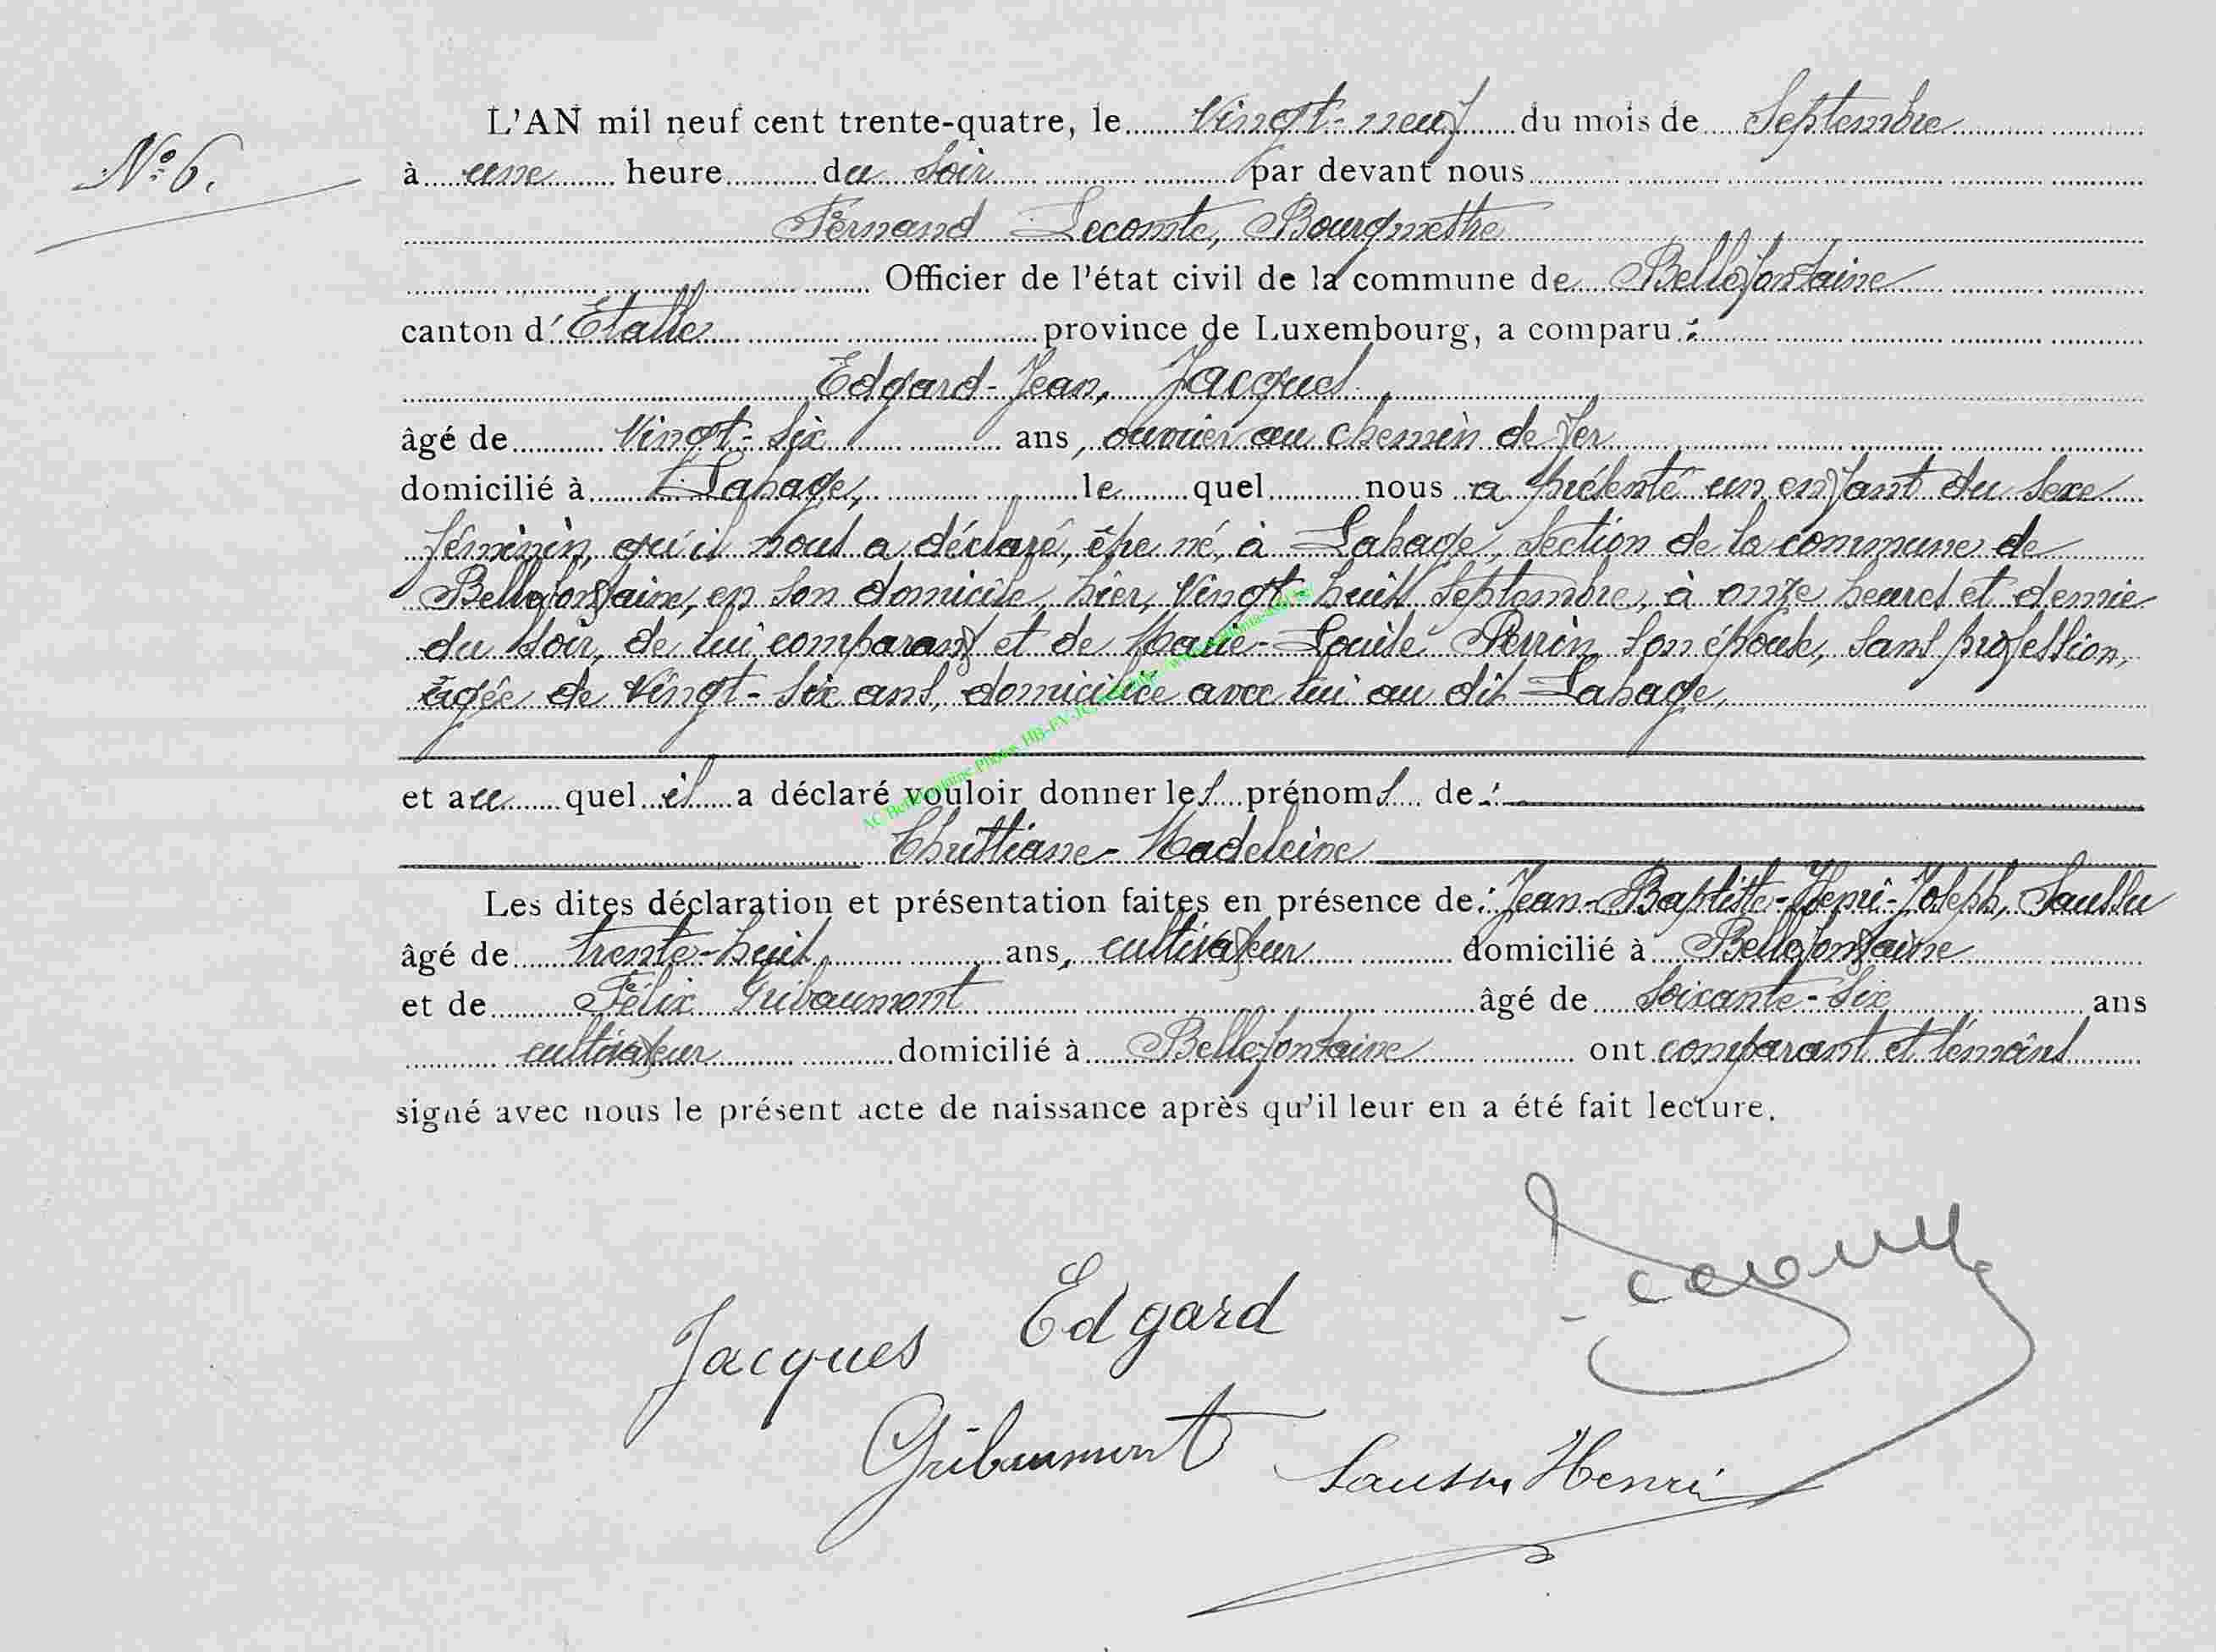 N° 6.
L'AN mil neuf cent trente-quatre, le Vingt-neuf du mois de Septembre
à une heure du soir par devant nous
Fernand Lecomte, Bourgmestre
Officier de l'état civil de la commune de Bellefontaine
canton d'Etalle province de Luxembourg, a comparu :
Edgard-Jean, Jacques
âgé de Vingt-six ans, ouvrier au chemin de fer
domicilié à Lahage, lequel nous a présenté un enfant du sexe
féminin, qu'il nous a déclaré, être né, à Lahage, section de la commune de
Bellefontaine, en son domicile, hier, Vingt-huit Septembre, à onze heures et demie
du soir, de lui comparant et de Marie-Louise Perrin son épouse, sans profession,
âgée de Vingt-six ans, domiciliée avec lui au dit Lahage,
et auquel il a déclaré vouloir donner les prénoms de :
Christiane-Madeleine
Les dites déclaration et présentation faites en présence de : Jean-Baptiste-Henri-Joseph, Saussu
âgé de trente-huit ans, cultivateur domicilié à Bellefontaine
et de Félix Gribaumont âgé de soixante-six ans
cultivateur domicilié à Bellefontaine ont comparant et témoins
signé avec nous le présent acte de naissance après qu'il leur en a été fait lecture.
Jacques Edgard
Gribaumont Saussu Henri